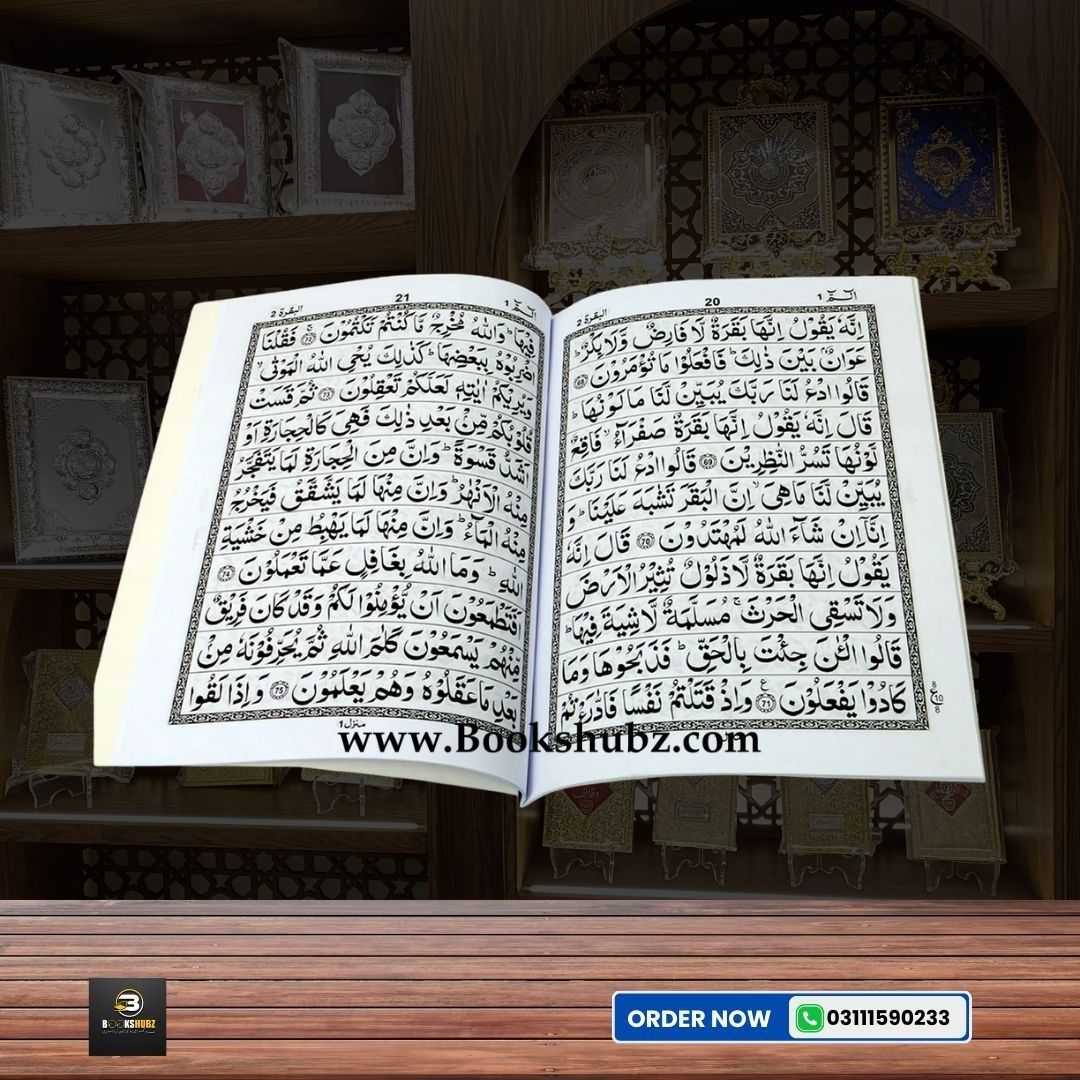 الٓمّٓ 1 20 البقرة 2
اِنَّهٗ يَقُوْلُ اِنَّهَا بَقَرَةٌ لَّا فَارِضٌ وَّلَا بِكْرٌ ؕ
عَوَانٌۢ بَيْنَ ذٰلِكَ ؕ فَافْعَلُوْا مَا تُؤْمَرُوْنَ 68
قَالُوا ادْعُ لَنَا رَبَّكَ يُبَيِّنْ لَّنَا مَا لَوْنُهَا ؕ
قَالَ اِنَّهٗ يَقُوْلُ اِنَّهَا بَقَرَةٌ صَفْرَآءُ ۙ فَاقِعٌ
لَّوْنُهَا تَسُرُّ النّٰظِرِيْنَ 69 قَالُوا ادْعُ لَنَا رَبَّكَ
يُبَيِّنْ لَّنَا مَا هِيَ ۙ اِنَّ الْبَقَرَ تَشٰبَهَ عَلَيْنَا ؕ وَ
اِنَّاۤ اِنْ شَآءَ اللّٰهُ لَمُهْتَدُوْنَ 70 قَالَ اِنَّهٗ
يَقُوْلُ اِنَّهَا بَقَرَةٌ لَّا ذَلُوْلٌ تُثِيْرُ الْاَرْضَ
وَلَا تَسْقِي الْحَرْثَ ۚ مُسَلَّمَةٌ لَّا شِيَةَ فِيْهَا ؕ
قَالُوا الْـٰٔنَ جِئْتَ بِالْحَقِّ ؕ فَذَبَحُوْهَا وَمَا
كَادُوْا يَفْعَلُوْنَ 71 وَاِذْ قَتَلْتُمْ نَفْسًا فَادّٰرَءْتُمْ
ع 8 10 8
الٓمّٓ 1 21 البقرة 2
فِيْهَا ؕ وَاللّٰهُ مُخْرِجٌ مَّا كُنْتُمْ تَكْتُمُوْنَ 72 فَقُلْنَا
اضْرِبُوْهُ بِبَعْضِهَا ؕ كَذٰلِكَ يُحْيِ اللّٰهُ الْمَوْتٰى ۙ
وَيُرِيْكُمْ اٰيٰتِهٖ لَعَلَّكُمْ تَعْقِلُوْنَ 73 ثُمَّ قَسَتْ
قُلُوْبُكُمْ مِّنْۢ بَعْدِ ذٰلِكَ فَهِيَ كَالْحِجَارَةِ اَوْ
اَشَدُّ قَسْوَةً ؕ وَاِنَّ مِنَ الْحِجَارَةِ لَمَا يَتَفَجَّرُ
مِنْهُ الْاَنْهٰرُ ؕ وَاِنَّ مِنْهَا لَمَا يَشَّقَّقُ فَيَخْرُجُ
مِنْهُ الْمَآءُ ؕ وَاِنَّ مِنْهَا لَمَا يَهْبِطُ مِنْ خَشْيَةِ
اللّٰهِ ؕ وَمَا اللّٰهُ بِغَافِلٍ عَمَّا تَعْمَلُوْنَ 74
اَفَتَطْمَعُوْنَ اَنْ يُّؤْمِنُوْا لَكُمْ وَقَدْ كَانَ فَرِيْقٌ
مِّنْهُمْ يَسْمَعُوْنَ كَلٰمَ اللّٰهِ ثُمَّ يُحَرِّفُوْنَهٗ مِنْۢ
بَعْدِ مَا عَقَلُوْهُ وَهُمْ يَعْلَمُوْنَ 75 وَاِذَا لَقُوا
منزل 1
www.Bookshubz.com
B BOOKSHUBZ
ORDER NOW 03111590233